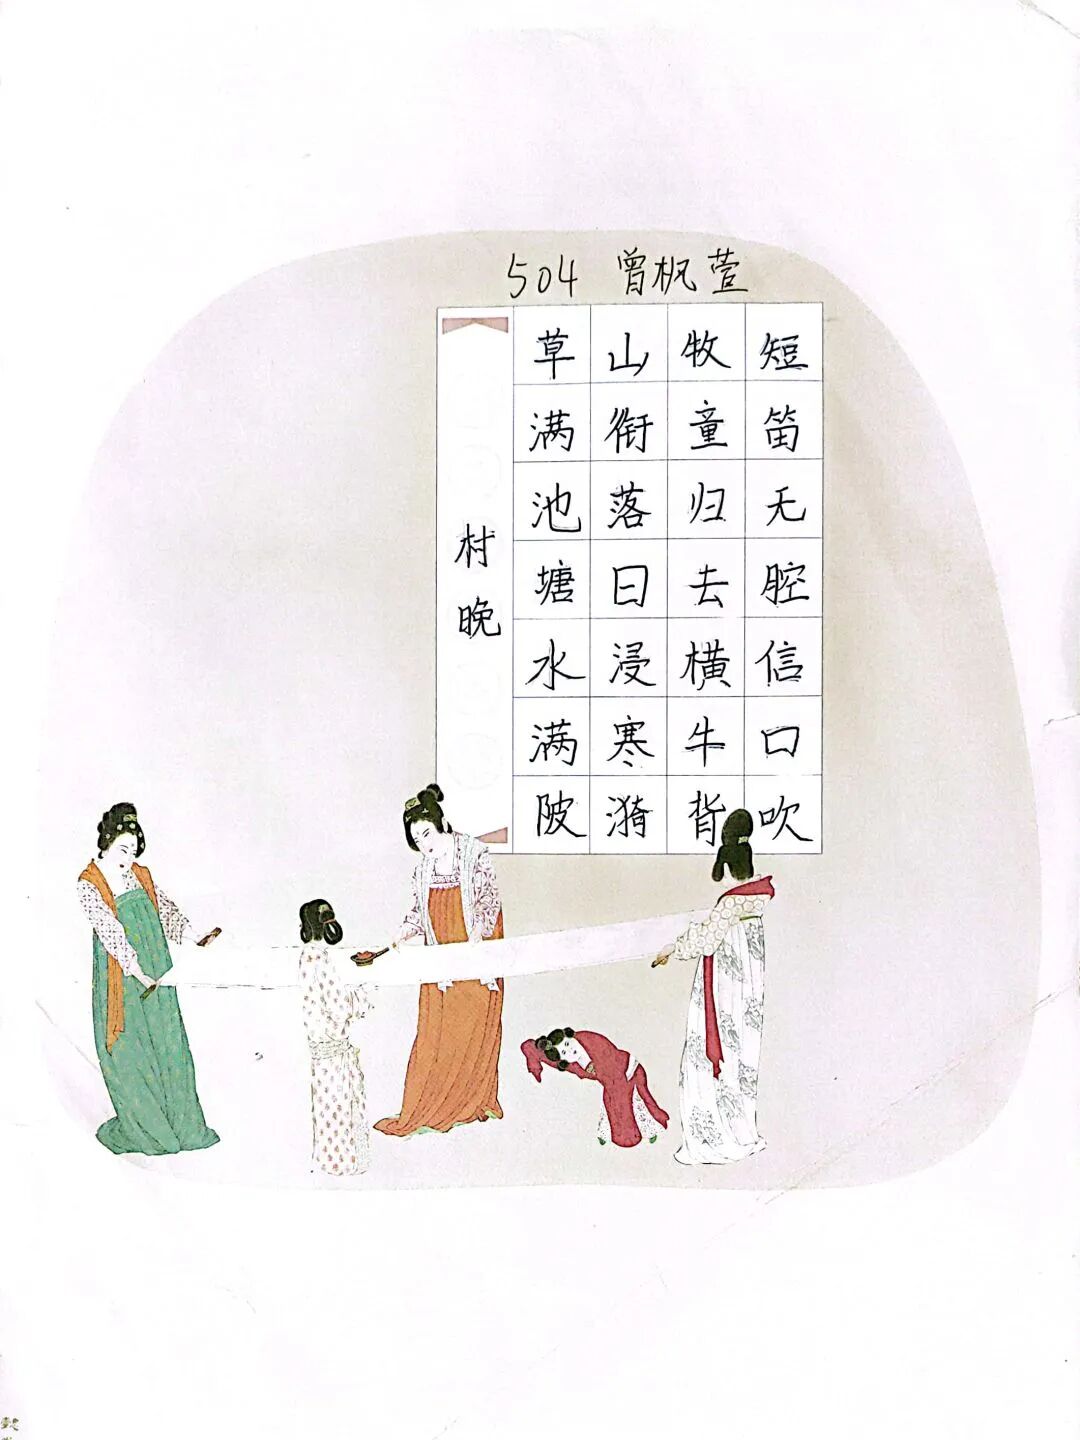 504 曾枫萱
村晚
草满池塘水满陂
山衔落日浸寒漪
牧童归去横牛背
短笛无腔信口吹